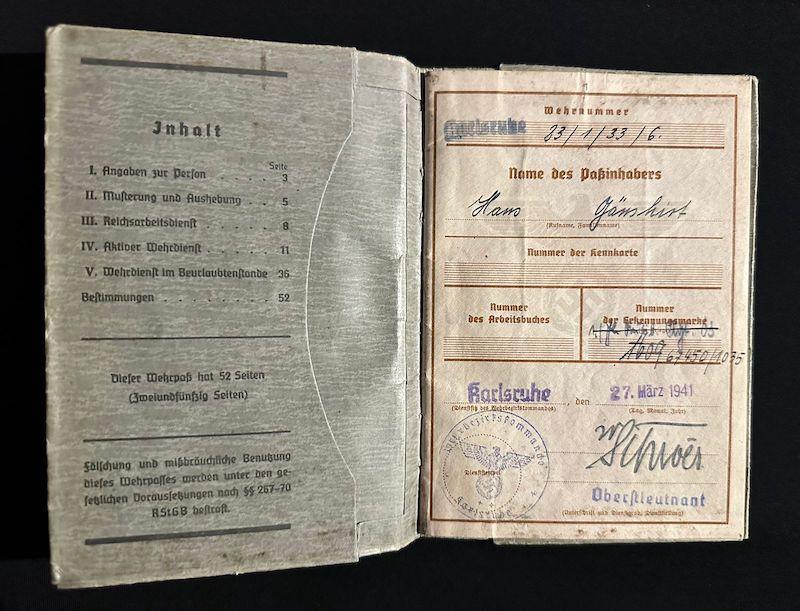 Inhalt
Seite
I. Angaben zur Person . . . . 3
II. Musterung und Aushebung . . . 5
III. Reichsarbeitsdienst . . . . 8
IV. Aktiver Wehrdienst . . . . 11
V. Wehrdienst im Beurlaubtenstande 36
Bestimmungen . . . . . . . 52
Dieser Wehrpaß hat 52 Seiten
(Zweiundfünfzig Seiten)
Fälschung und mißbräuchliche Benutzung
dieses Wehrpasses werden unter den ge-
setzlichen Voraussetzungen nach §§ 267-70
RStGB bestraft.
Wehrnummer
Karlsruhe 33/1/33/6.
Name des Paßinhabers
Hans Gänshirt
(Rufname, Familienname)
Nummer der Kennkarte
Nummer
des Arbeitsbuches
Nummer
der Erkennungsmarke
Karlsruhe, den 27. März 1941
(Dienstsitz des Wehrbezirkskommandos) (Tag, Monat, Jahr)
Wehrbezirkskommando
Dienststempel
Oberstleutnant
(Unterschrift und Dienstgrad, Dienststellung)